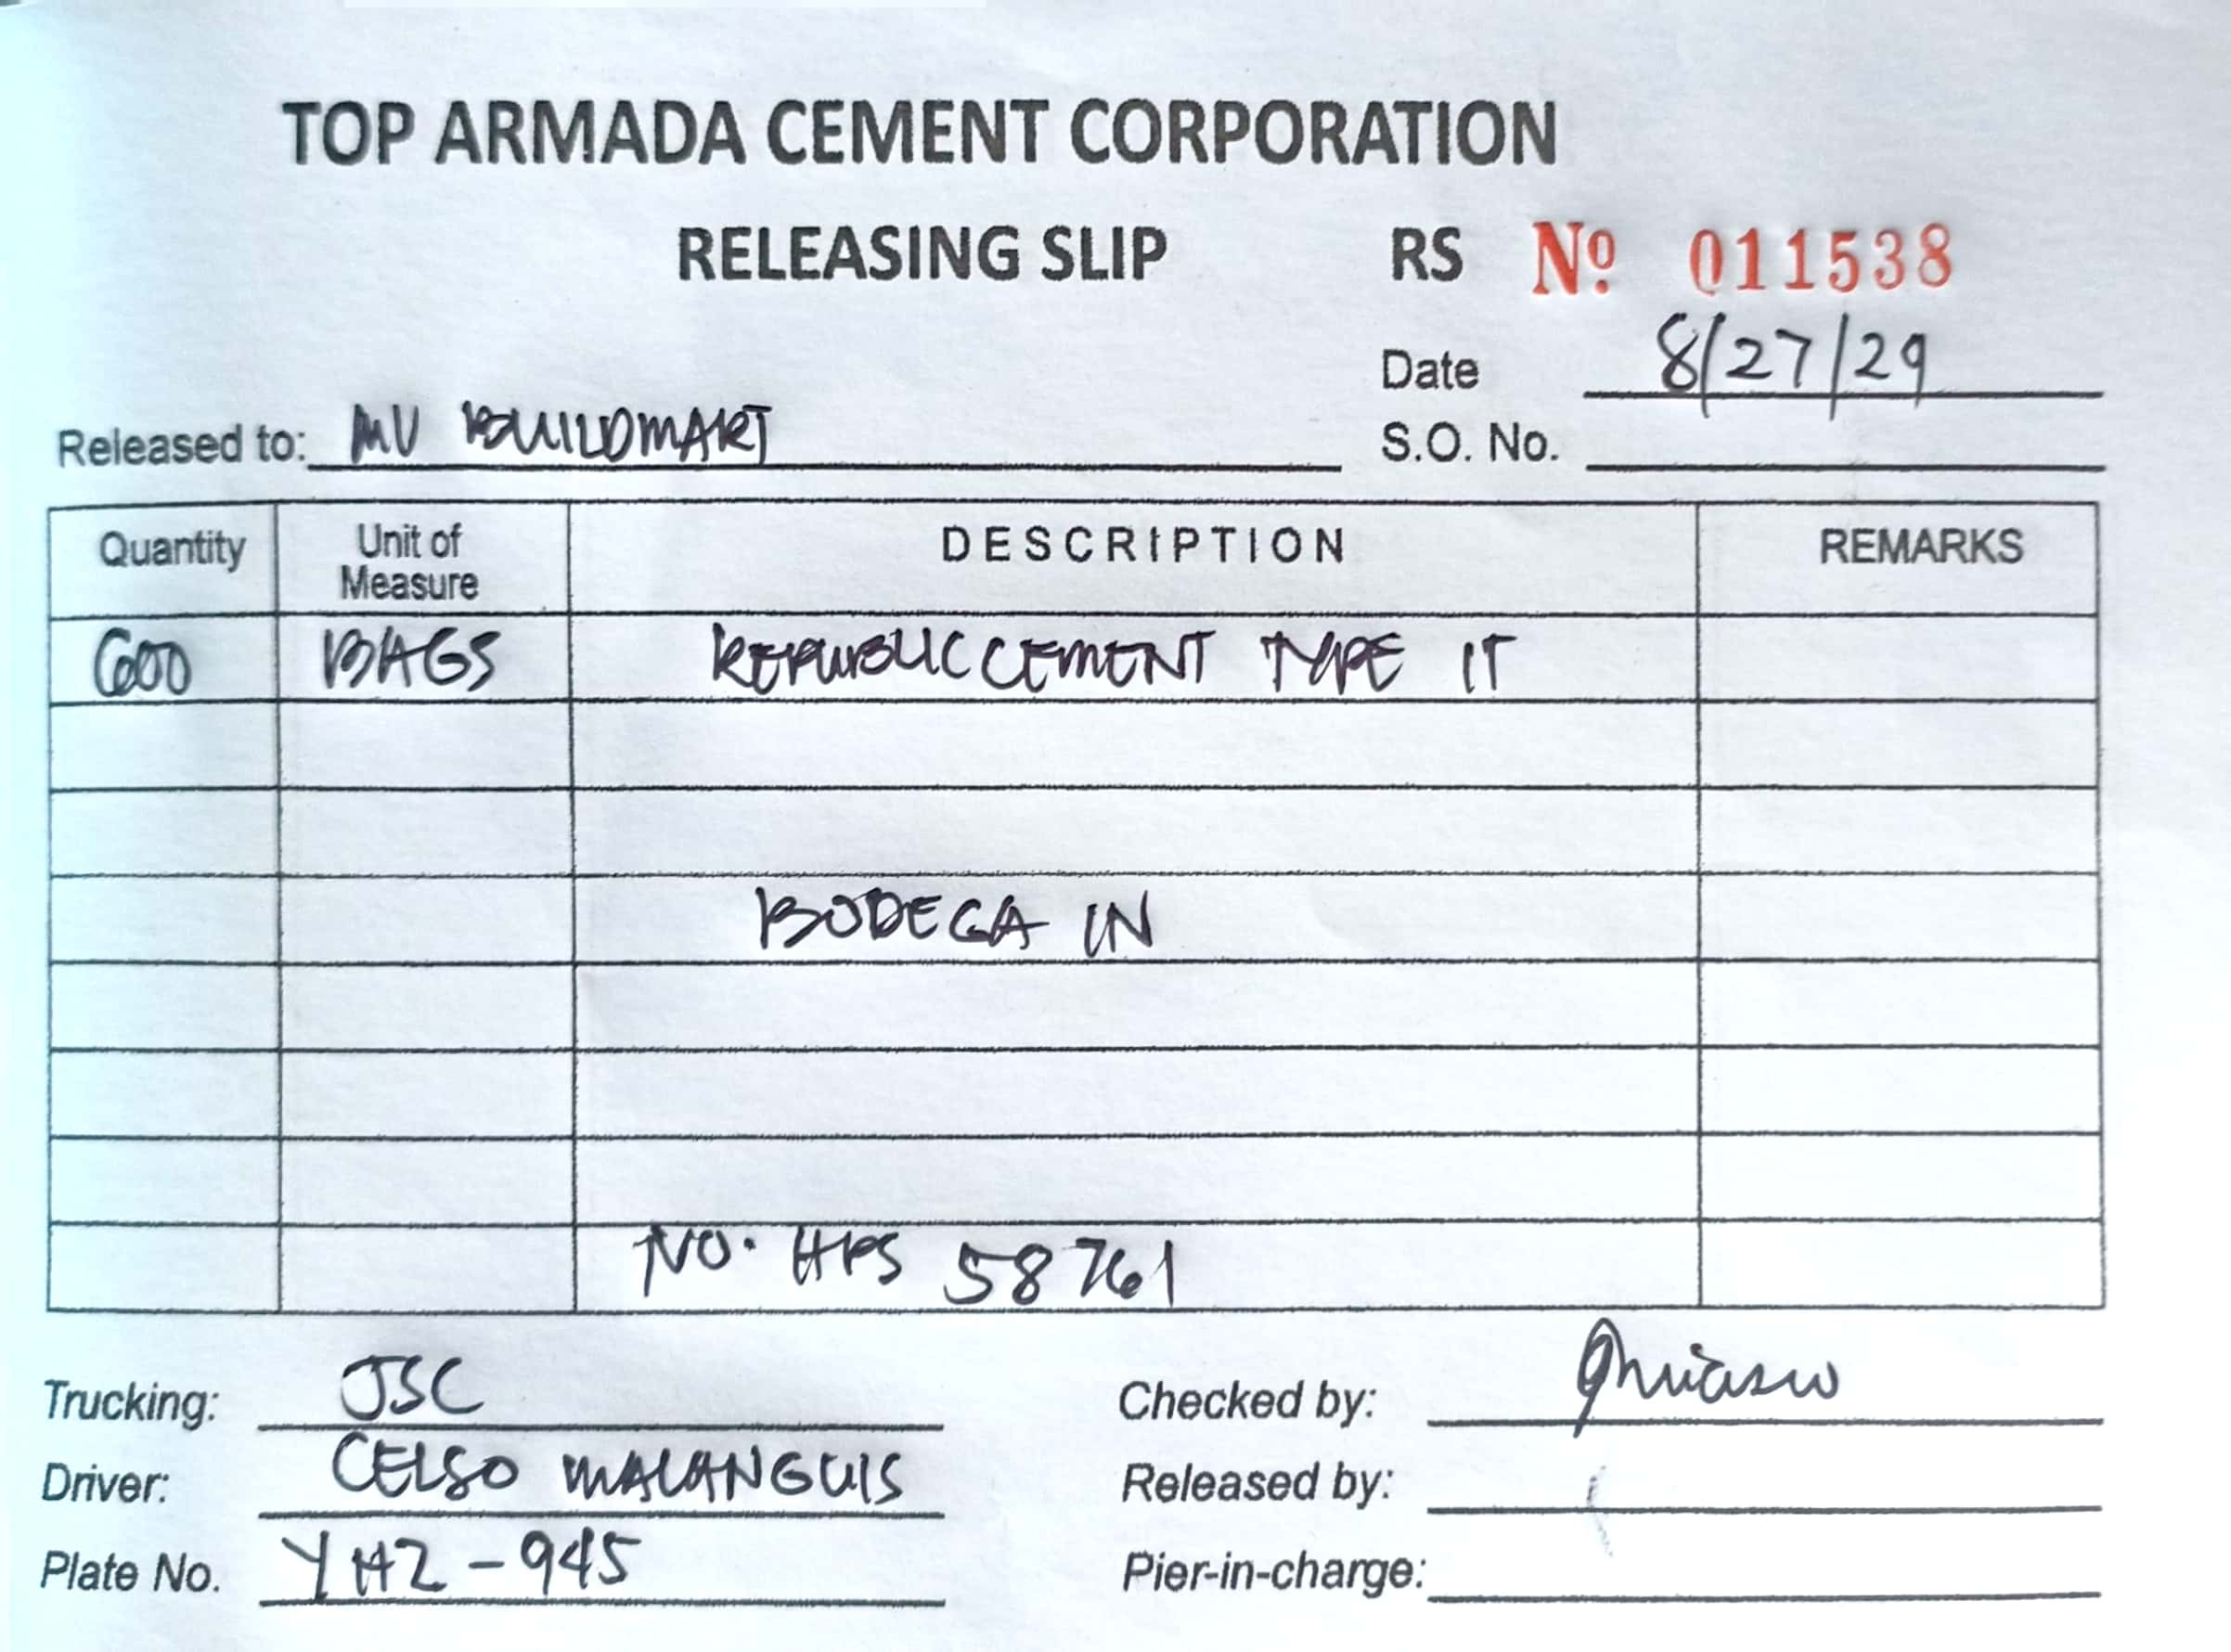 TOP ARMADA CEMENT CORPORATION
RELEASING SLIP RS Nº 011538
Date 8/27/29
Released to: MV BUILDMART
S.O. No.
Quantity Unit of Measure DESCRIPTION REMARKS
600 BAGS REPUBLIC CEMENT TYPE 1T
BODEGA IN
NO. HPS 58761
Trucking: JSC
Checked by:
Driver: CELSO MALANGUIS
Released by:
Plate No. YHZ-945
Pier-in-charge: